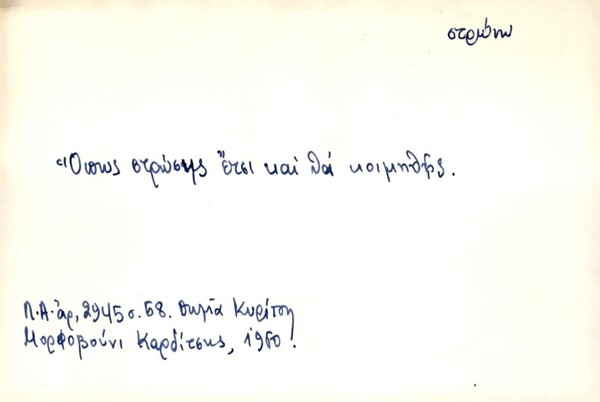 στρώνω
Ὅπως στρώσης ἔτσι καὶ θά κοιμηθῇς.
Λ.Α. ἀρ. 2945 σ. 58. Κυρίτση
Μορφοβούνι Καρδίτσης, 1960.